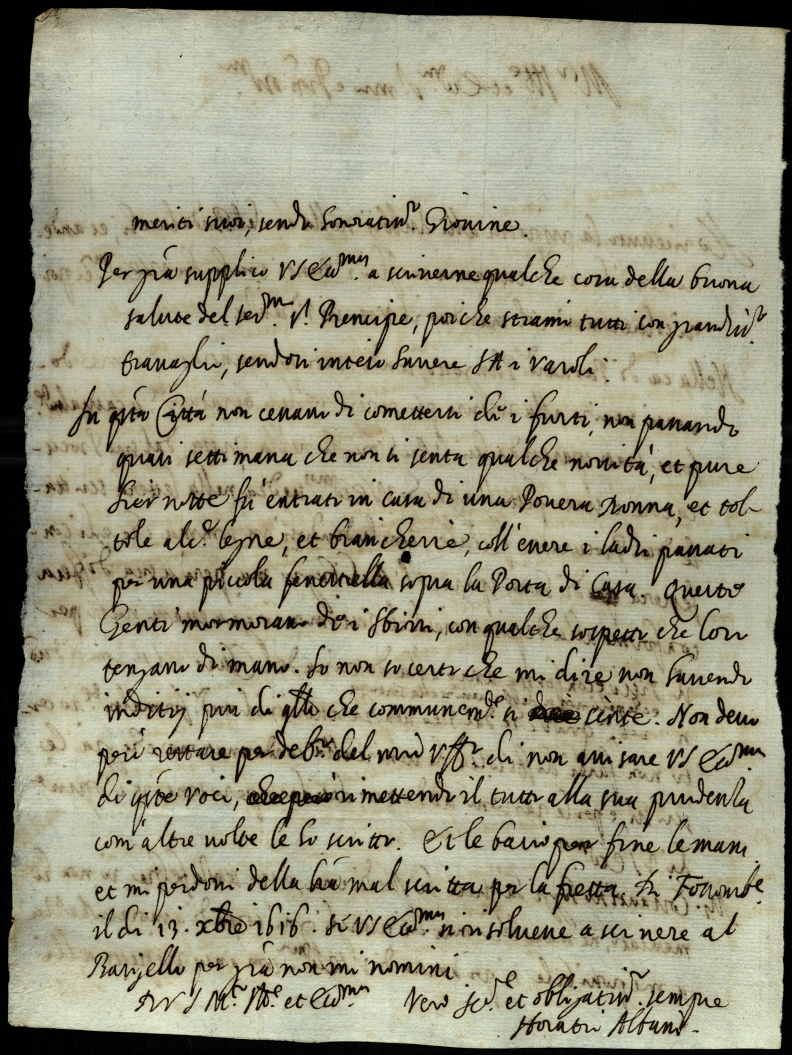 meriti suoi, sendo honoratiss.º Giovine.
Per grã supplico VS Ecc.ma a scrivermequalche cosa della buona
salute del ser.mo s.r Prencipe, poiche stiamo tutti con grandiss.º
travaglio, sendosi inteso havere i varoli.
In q̃ta Città non cessano di cometterti dẽ i furti, non passando
quasi settimana che non si senta qualche novità, et pure
hier notte fu' entrato in casa di una Povera Donna, et tol-
tole alc.e legne, et biancherie, coll'avere i ladri passati
per una piccola fenestrella sopra la Porta di Casa. Queste
Genti mormorano dẽ i Sbirri, con qualche sospetto che loro
tengano di mano. Io non so certo che mi dire non havendo
inditij più di q̃llo che communem.e si sente. Non devo
però restare per deb.to del mio Uff.o di non avisare VS Ecc.ma
di q̃ste voci, rimettendo il tutto alla sua prudenza
com' altre volte le ho scritto. Et le bacio per fine le mani
et mi perdoni della mal scritta per la fretta. Di Fossombe.
il di 13. xbre 1616. Se VS Ecc.ma si risolvesse a scrivere al
Barigello per grã non mi nomini
Di VS M.to Ill.e et Ecc.ma Vero se.re et obligatiss.º sempre
Horatio Albani.